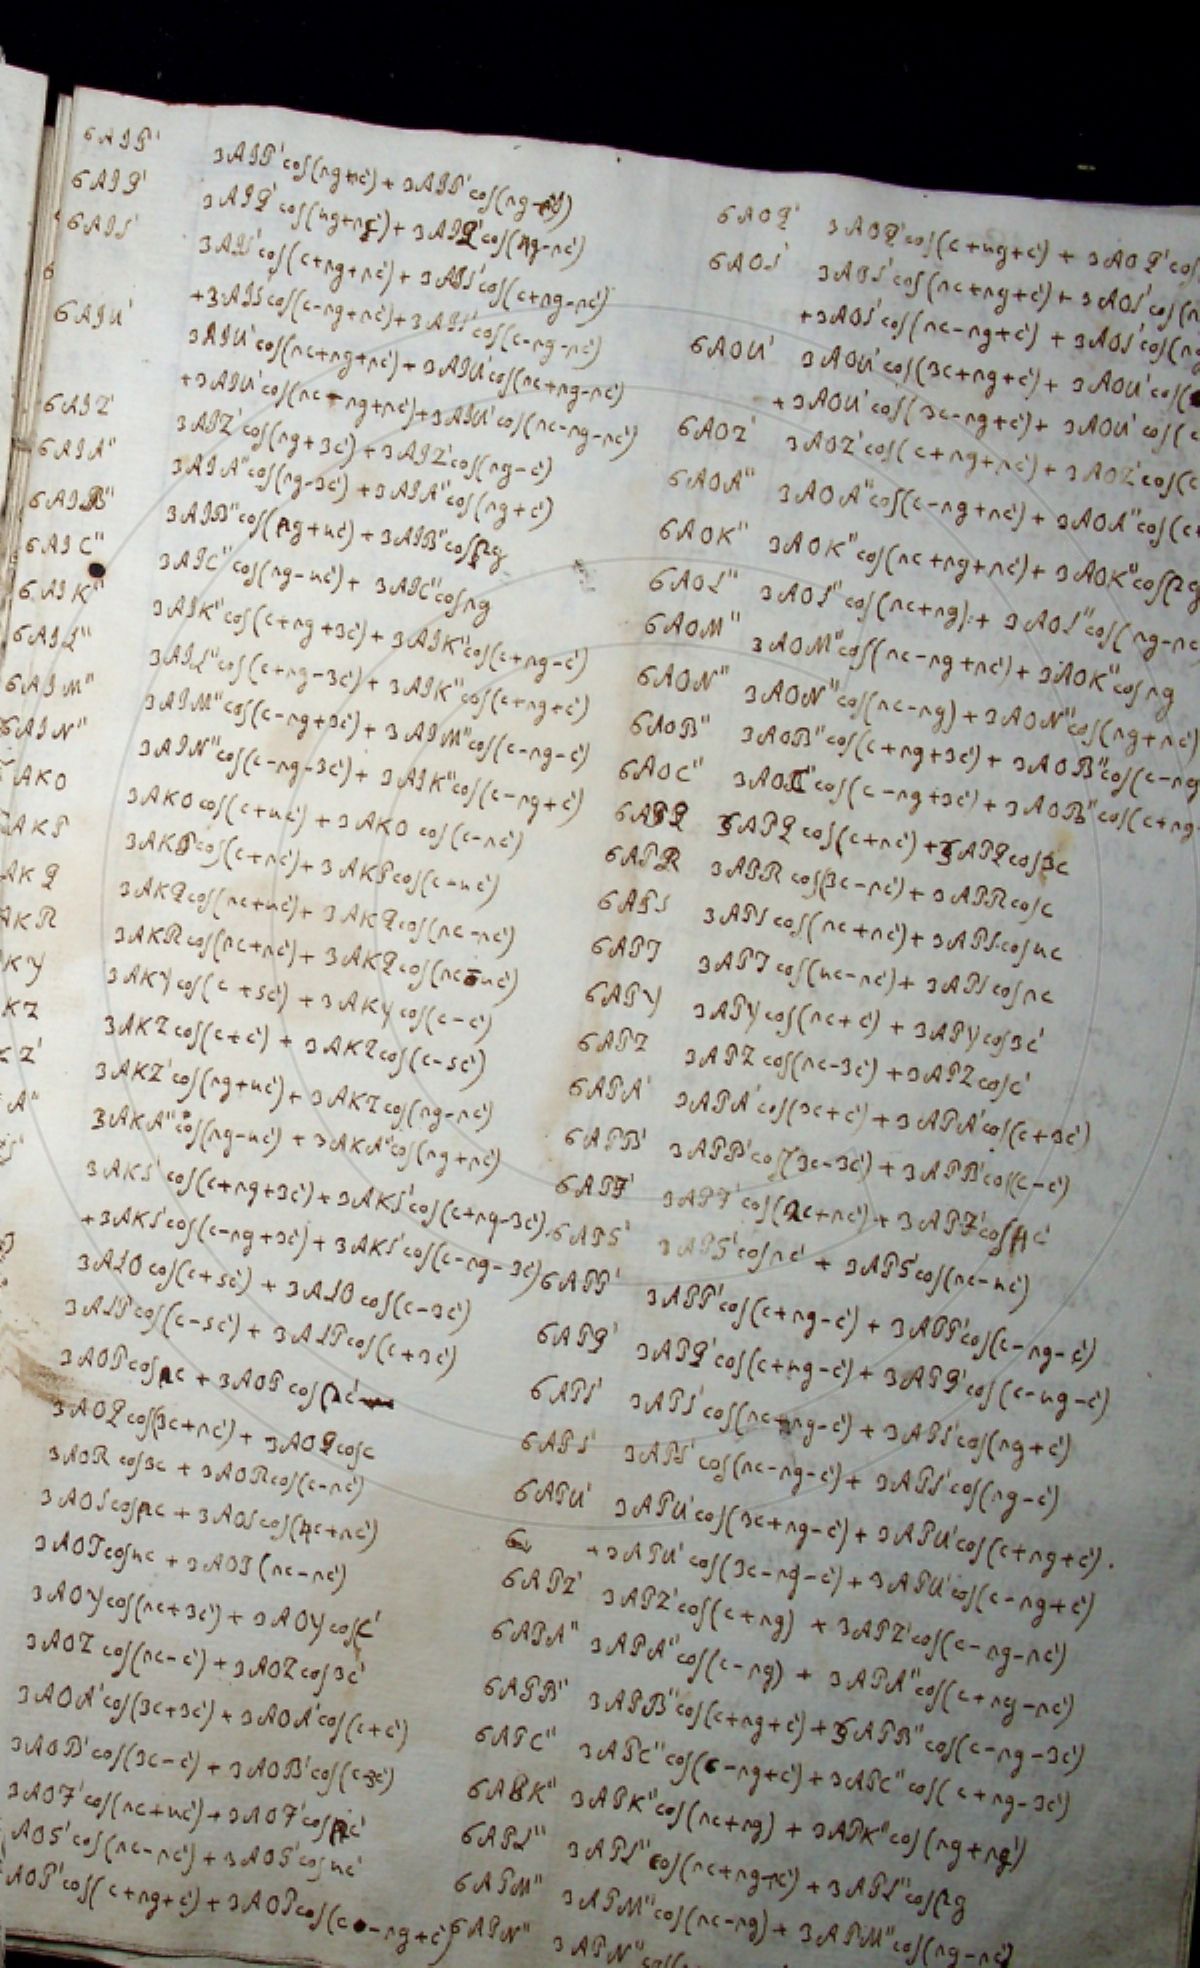 6AIP'
3AIP'cos(ng+nc') + 3AIP'cos(ng-
6AIQ'
3AIQ'cos(ng+nc') + 3AIQ'cos(ng-nc')
6AIS'
3AIS'cos(c+ng+nc') + 3AIS'cos(c+ng-nc')
+3AIS'cos(c-ng+nc') + 3AIS'cos(c-ng-nc')
6AIU'
3AIU'cos(nc+ng+nc') + 3AIU'cos(nc+ng-nc')
+3AIU'cos(nc-ng+nc') + 3AIU'cos(nc-ng-nc')
6AIZ'
3AIZ'cos(ng+3c') + 3AIZ'cos(ng-c')
6AIA"
3AIA"cos(ng-3c') + 3AIA"cos(ng+c')
6AIB"
3AIB"cos(ng+nc') + 3AIB"cos ng
6AIC"
3AIC"cos(ng-nc') + 3AIC"cos ng
6AIK"
3AIK"cos(c+ng+3c') + 3AIK"cos(c+ng-c')
6AIL"
3AIL"cos(c+ng-3c') + 3AIK"cos(c+ng+c')
6AIM"
3AIM"cos(c-ng+3c') + 3AIM"cos(c-ng-c')
6AIN"
3AIN"cos(c-ng-3c') + 3AIK"cos(c-ng+c')
AKO
3AKO cos(c+nc') + 3AKO cos(c-nc')
AKP
3AKP cos(c+nc') + 3AKP cos(c-nc')
AKQ
3AKQ cos(nc+nc') + 3AKQ cos(nc-nc')
AKR
3AKR cos(nc+nc') + 3AKQ cos(nc-nc')
KY
3AKY cos(c+5c') + 3AKY cos(c-c')
KZ
3AKZ cos(c+c') + 3AKZ cos(c-5c')
Z'
3AKZ'cos(ng+nc') + 3AKZ cos(ng-nc')
A"
3AKA"cos(ng-nc') + 3AKA"cos(ng+nc')
S'
3AKS'cos(c+ng+3c') + 3AKS'cos(c+ng-3c')
+3AKS'cos(c-ng+3c') + 3AKS'cos(c-ng-3c')
3ALO cos(c+5c') + 3ALO cos(c-3c')
3ALP cos(c-5c') + 3ALP cos(c+3c')
3AOP cos nc + 3AOP cos nc'
3AOQ cos(3c+nc') + 3AOQ cos c
3AOR cos 3c + 3AOR cos(c-nc')
3AOS cos nc + 3AOS cos(4c+nc')
3AOT cos nc + 3AOT (nc-nc')
3AOY cos(nc+3c') + 3AOY cos c'
3AOZ cos(nc-c') + 3AOZ cos 3c'
3AOA'cos(3c+3c') + 3AOA'cos(c+c')
3AOB'cos(3c-c') + 3AOB'cos(c-3c')
3AOF'cos(nc+nc') + 3AOF'cos nc'
AOG'cos(nc-nc') + 3AOG'cos nc'
AOP'cos(c+ng+c') + 3AOP cos(c-ng+c')
6AOQ' 3AOQ'cos(c+ng+c') + 3AOQ'cos
6AOS' 3AOS'cos(nc+ng+c') + 3AOS'cos(n
+3AOS'cos(nc-ng+c') + 3AOS'cos(n
6AOU' 3AOU'cos(3c+ng+c') + 3AOU'cos(
+3AOU'cos(3c-ng+c') + 3AOU'cos(c
6AOZ' 3AOZ'cos(c+ng+nc') + 3AOZ'cos(c
6AOA" 3AOA"cos(c-ng+nc') + 3AOA"cos(c+
6AOK" 3AOK"cos(nc+ng+nc') + 3AOK"cos ng
6AOL" 3AOL"cos(nc+ng) + 3AOL"cos(ng-nc
6AOM" 3AOM"cos(nc-ng+nc') + 3AOK"cos ng
6AON" 3AON"cos(nc-ng) + 3AON"cos(ng+nc')
6AOB" 3AOB"cos(c+ng+3c') + 3AOB"cos(c-ng
6AOC" 3AOC"cos(c-ng+3c') + 3AOB"cos(c+ng-
6APQ 3APQ cos(c+nc') + 3APQ cos 3c
6APR 3APR cos(3c-nc') + 3APR cos c
6APS 3APS cos(nc+nc') + 3APS cos nc
6APT 3APT cos(nc-nc') + 3APS cos nc
6APY 3APY cos(nc+c') + 3APY cos 3c'
6APZ 3APZ cos(nc-3c') + 3APZ cos c'
6APA' 3APA'cos(3c+c') + 3APA'cos(c+3c')
6APB' 3APB'cos(3c-3c') + 3APB'cos(c-c')
6APF' 3APF'cos(2c+nc') + 3APF'cos 4c'
6APG' 3APG'cos nc' + 3APG'cos(nc-nc')
6APP' 3APP'cos(c+ng-c') + 3APP'cos(c-ng-c')
6APQ' 3APQ'cos(c+ng-c') + 3APQ'cos(c-ng-c')
6APS' 3APS'cos(nc+ng-c') + 3APS'cos(ng+c')
6APS' 3APS'cos(nc-ng-c') + 3APS'cos(ng-c')
6APU' 3APU'cos(3c+ng-c') + 3APU'cos(c+ng+c').
+3APU'cos(3c-ng-c') + 3APU'cos(c-ng+c')
6APZ' 3APZ'cos(c+ng) + 3APZ'cos(c-ng-nc')
6APA" 3APA"cos(c-ng) + 3APA"cos(c+ng-nc')
6APB" 3APB"cos(c+ng+c') + 3APB"cos(c-ng-3c')
6APC" 3APC"cos(c-ng+c') + 3APC"cos(c+ng-3c')
6APK" 3APK"cos(nc+ng) + 3APK"cos(ng+ng')
6APL" 3APL"cos(nc+ng-nc') + 3APL"cos ng
6APM" 3APM"cos(nc-ng) + 3APM"cos(ng-nc')
6APN" 3APN"cos(